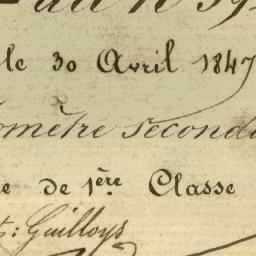 le 30 Avril 1847
omètre seconda
e de 1ère Classe
t: Guilloys